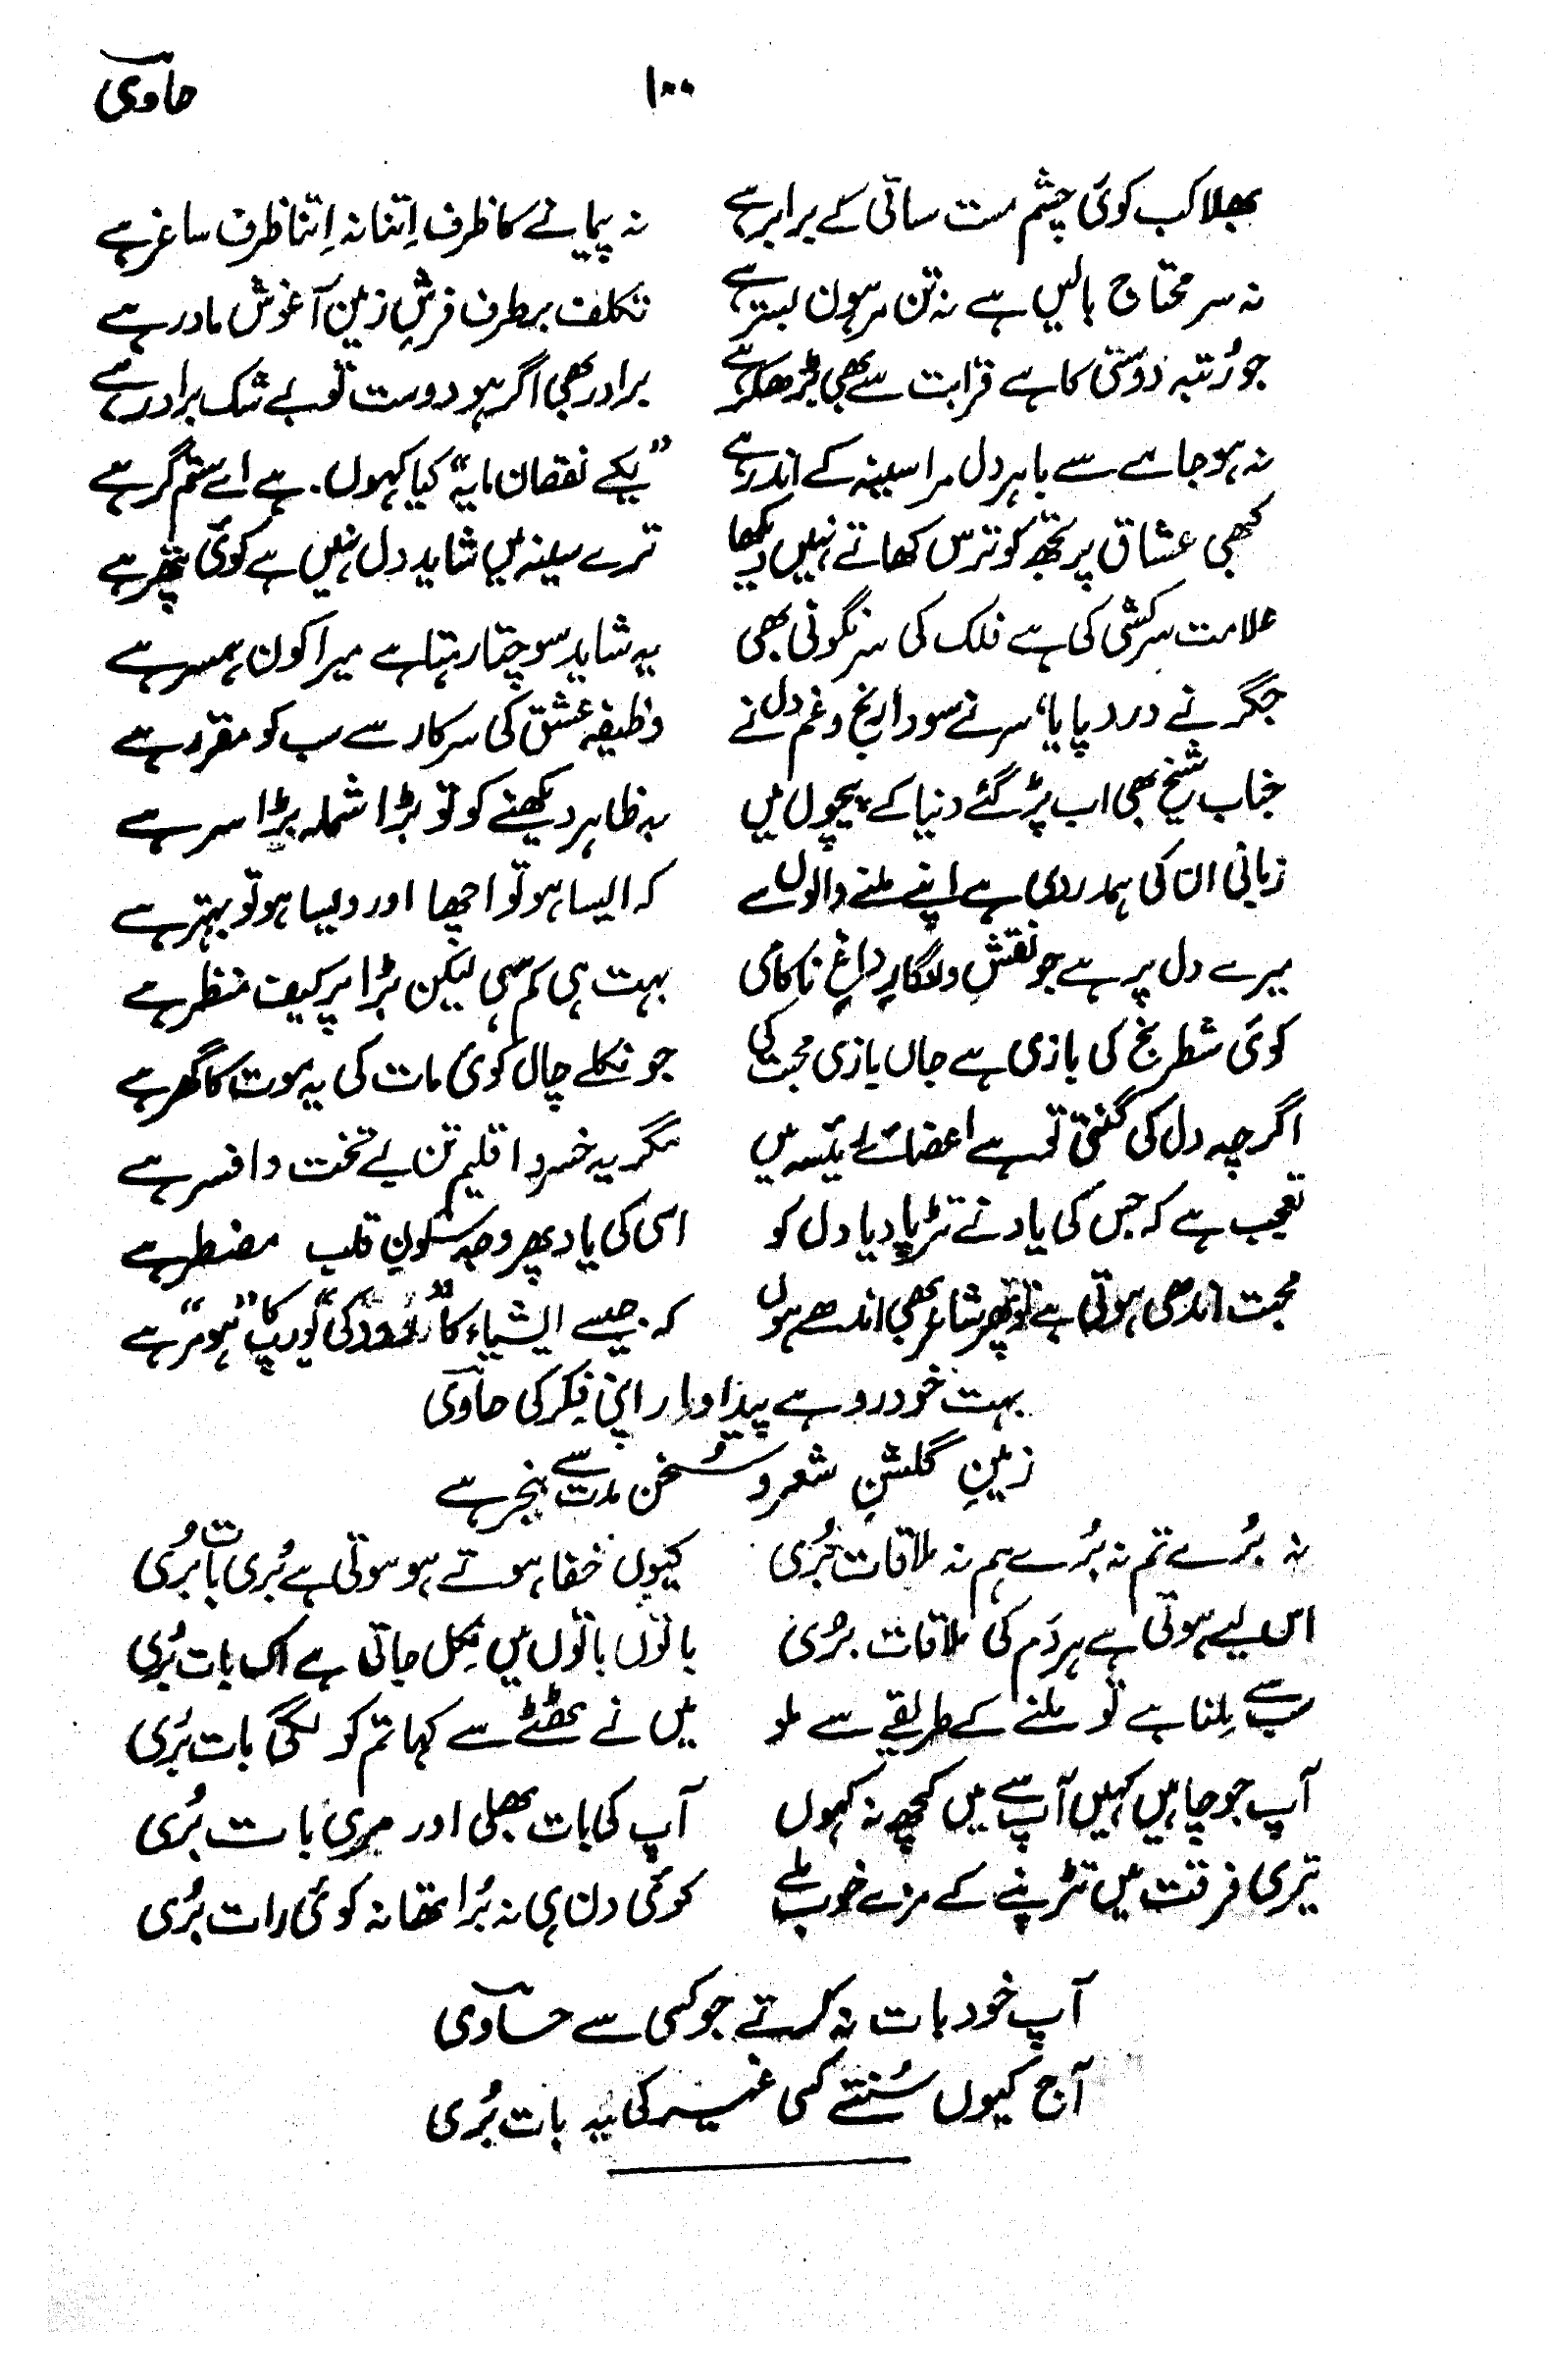 حاوی
۱۰۰
بھلا کب کوئی چشم مست ساقی کے برابر ہے
نہ پیمانے کا ظرف اِتنا نہ اِتنا ظرف ساغر ہے
نہ سر محتاج بالیں ہے نہ تن مرہون بستر ہے
تکلف برطرف فرشِ زمین آغوش مادر ہے
جو رُتبہ دوستی کا ہے قرابت سے بھی بڑھکر ہے
برادر بھی اگر ہو دوست تو بے شک برادر ہے
نہ ہو جامے سے باہر دل مرا سینہ کے اندر ہے
”یکے نقصان مایہ“ کیا کہوں. ہے اے ستم گر ہے
کبھی عشاق پر تجھ کو ترس کھاتے نہیں دیکھا
ترے سینہ میں شاید دل نہیں ہے کوئی پتھر ہے
علامت سرکشی کی ہے فلک کی سرنگونی بھی
یہ شاید سوچتا رہتا ہے میرا کون ہمسر ہے
جگر نے درد پایا، سر نے سودا رنج و غم دل نے
وظیفہ عشق کی سرکار سے سب کو مقرر ہے
جناب شیخ بھی اب پڑ گئے دنیا کے پیچوں میں
بہ ظاہر دیکھنے کو تو بڑا شملہ بڑا سر ہے
زبانی ان کی ہمدردی ہے اپنے ملنے والوں سے
کہ ایسا ہو تو اچھا اور ویسا ہو تو بہتر ہے
میرے دل پر ہے جو نقشِ ودلگار داغِ ناکامی
بہت ہی کم سہی لیکن بڑا پر کیف منظر ہے
کوئی شطرنج کی بازی ہے جاں بازی محبت کی
جو نکلے چال کوئی مات کی یہ موت کا گھر ہے
اگرچہ دل کی گنتی تو ہے اعضائے رئیسہ میں
مگر یہ خسرو اقلیم تن بے تخت و افسر ہے
تعجب ہے کہ جس کی یاد نے تڑپا دیا دل کو
اسی کی یاد پھر وجہ سکونِ قلب مضطر ہے
محبت اندھی ہوتی ہے تو پھر شاعر بھی اندھے ہوں
کہ جیسے ایشیاء کا رُودکی یورپ کا ”ہومر“ ہے
بہت خودرو ہے پیداوار اپنی فکر کی حاوی
زمینِ گلشنِ شعر و سُخن مدت سے بنجر ہے
نہ بُرے تم نہ بُرے ہم نہ ملاقات بُری
کیوں خفا ہوتے ہو ہوتی ہے بُری بات بُری
اس لیے ہوتی ہے ہر دَم کی ملاقات بُری
باتوں باتوں میں نکل جاتی ہے اک بات بُری
سب سے مِلنا ہے تو ملنے کے طریقے سے ملو
میں نے بھٹے سے کہا تم کو لگی بات بُری
آپ جو چاہیں کہیں آپ سے میں کچھ نہ کہوں
آپ کی بات بھلی اور مری بات بُری
تیری فرقت میں تڑپنے کے مزے خوب ملے
کوئی دن ہی نہ بُرا تھا نہ کوئی رات بُری
آپ خود بات نہ کرتے جو کسی سے حاوی
آج کیوں سُنتے کسی غیر کی یہ بات بُری